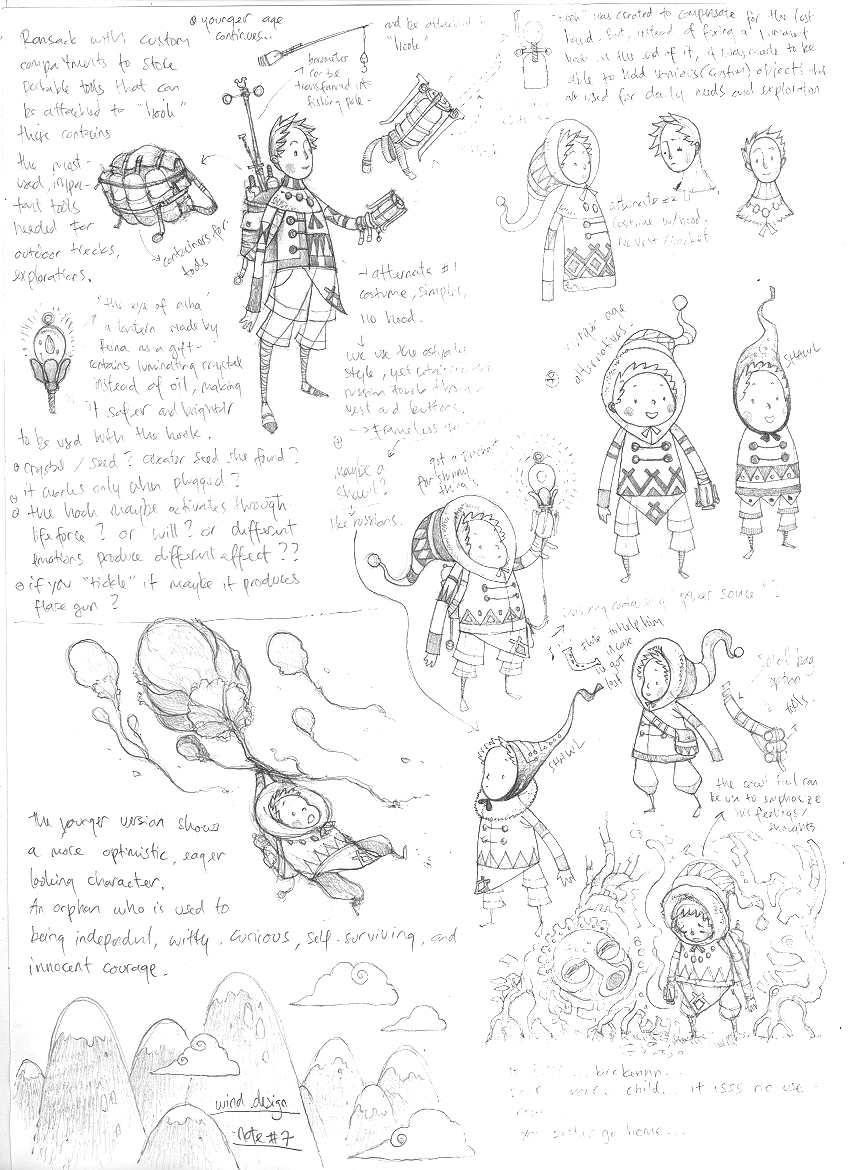 younger age
continues...
and be attached to
"hook"
Ransack with custom
compartments to store
portable tools that can
be attached to "hook"
there contains
the most-
used, impor-
tant tools
needed for
outdoor trecks,
explorations.
barometer
can be
transformed into
fishing pole-
containers for
tools
hook" was created to compensate for the lost
hand. But, instead of fixing a
hook in the end of it, it was made to be
able to hold various (custom) objects
used for daily needs and exploration
alternate #2
costume w/hood.
no vest/jacket
"the eye of
a lantern made by
as a gift-
contains luminating crystal
instead of oil, making
it safer and brighter
to be used with the hook.
crystal / seed? creator seed she found?
it works only when plugged?
the hook maybe activates through
life force? or will? or different
emotions produce different effect??
if you "tickle" it maybe it produces
flare gun?
alternate #1
costume, simple,
no hood.
we use the
style, yet
russian touch through
vest and buttons.
maybe a
shawl?
like russians.
got a
for shinny
things
younger age
alternatives.
SHAWL
containing "power source"?
flute to help him
in case
he got
lost
small bag
option
tools.
SHAWL
the cowl tail can
be use to emphasize
his feelings/
thoughts
the younger version shows
a more optimistic, eager
looking character.
An orphan who is used to
being independent, witty, curious, self-surviving, and
innocent courage.
wind design
note #7
child... it isss no use
go home...